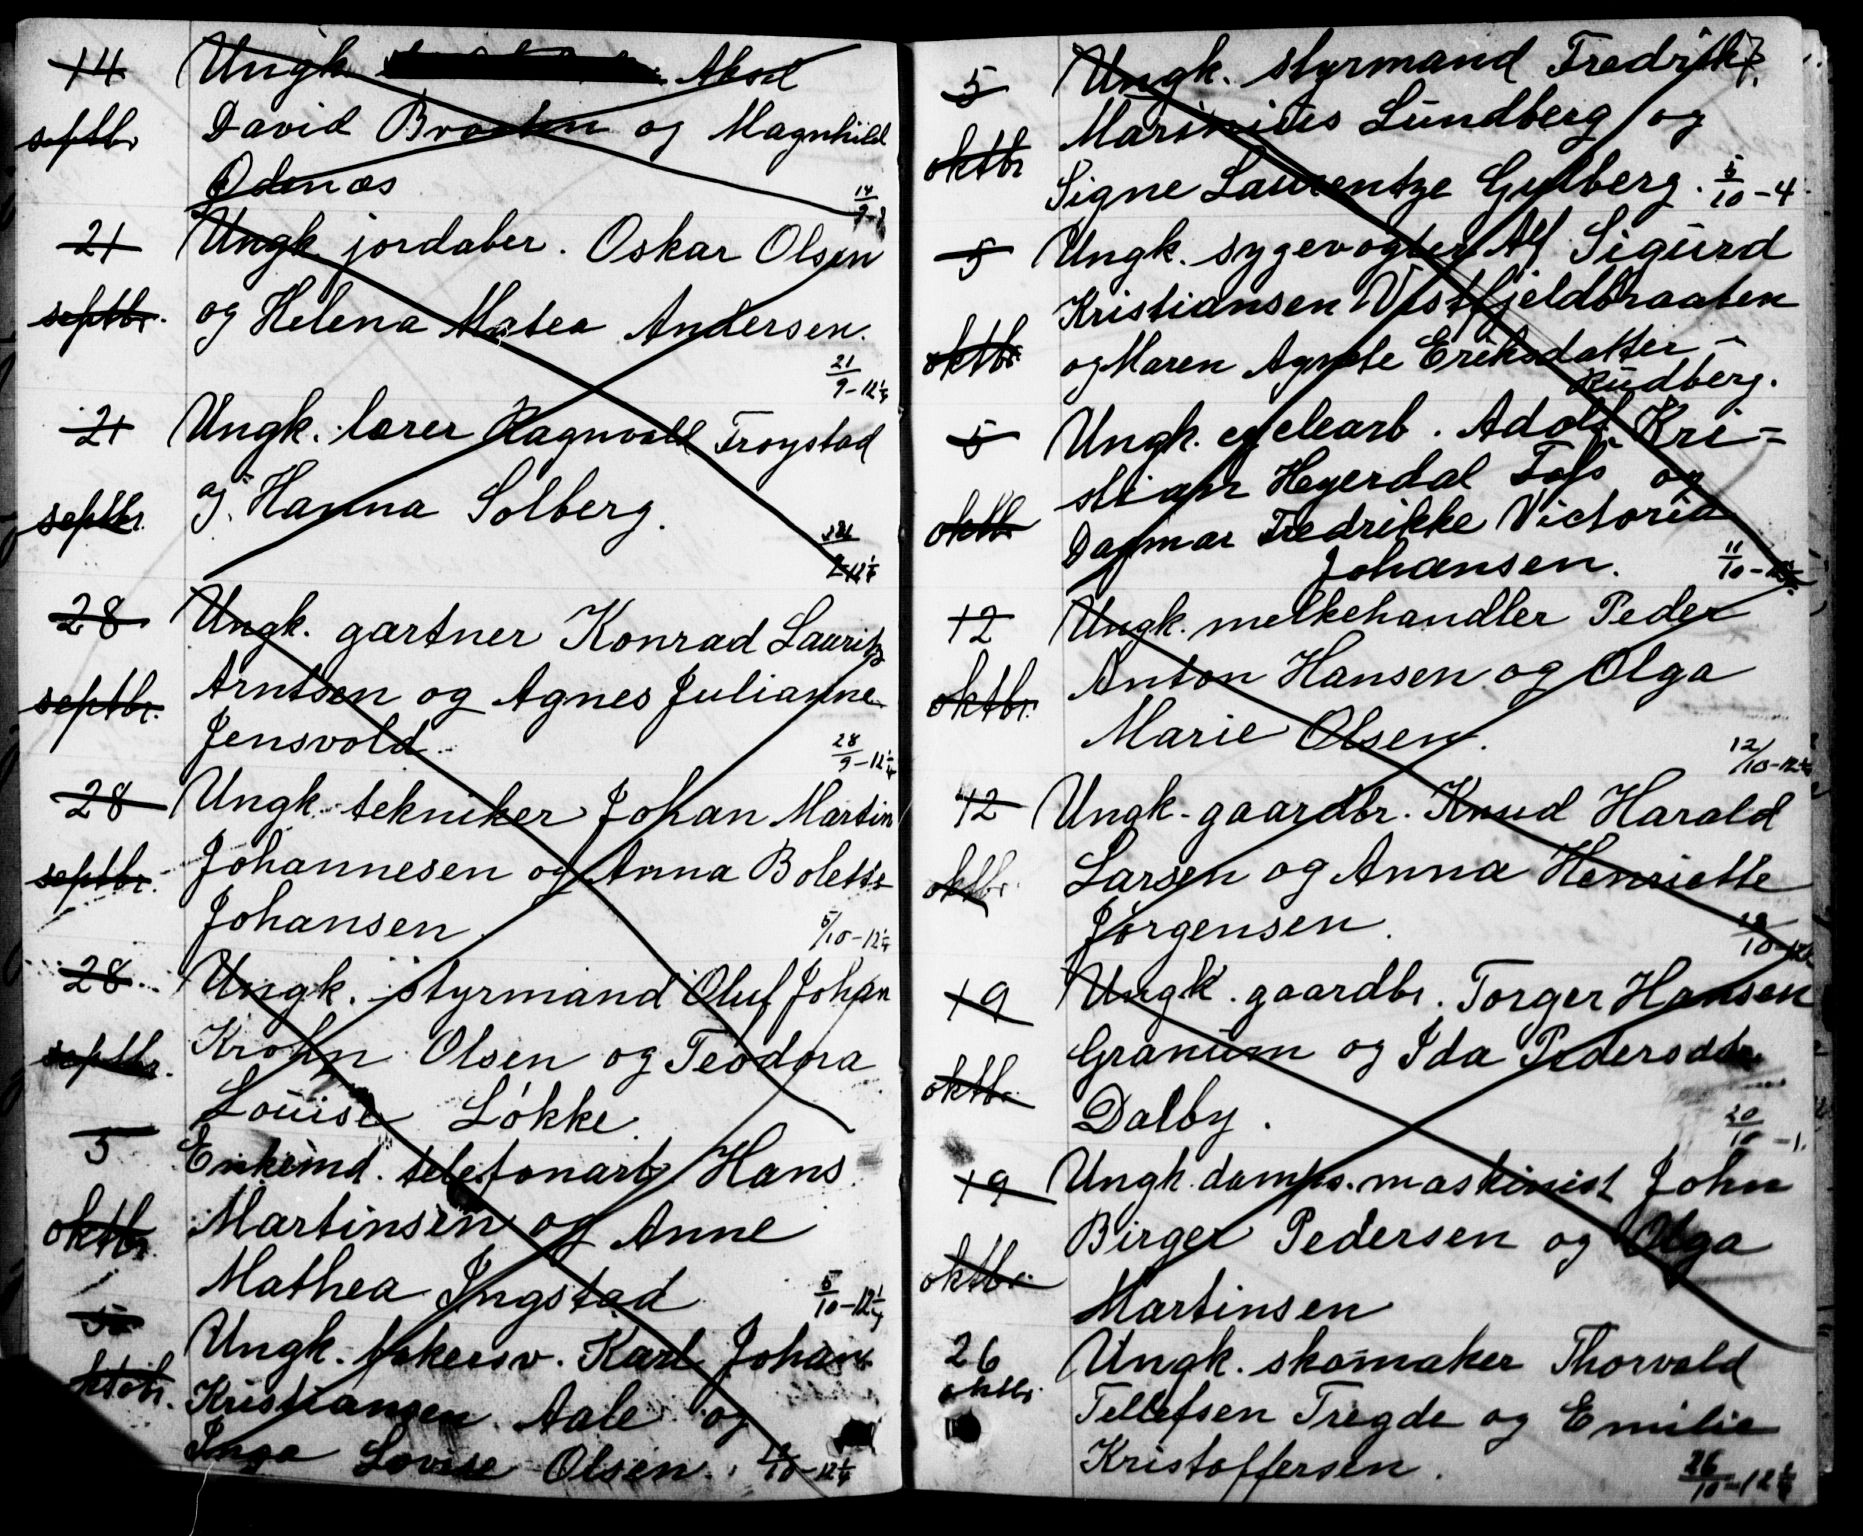 14 Ungk. Aksel
septbr David Braaten og Magnhild
Ödenæs 14/9
21 Ungk. jordaber. Oskar Olsen
septbr. og Helena Matea Andersen.
21/9-12¼
21 Ungk. lærer Ragnvald Troystad
septbr. og Hanna Solberg.
12¼
28 Ungk. gartner Konrad Lauritz
septbr. Arntsen og Agnes Julianne
Jensvold. 28/9-12¼
28 Ungk. tekniker Johan Martin
septbr. Johannesen og Anna Bolette
Johansen. 5/10-12¼
28 Ungk. styrmand Oluf Johan
septbr. Krohn Olsen og Teodora
Louise Løkke.
5 Enkemd. telefonarb. Hans
oktbr. Martinsen og Anne
Mathea Ingstad 5/10-12¼
5 Ungk. bokersv. Karl Johan
oktbr. Kristiansen Aale og
Inga Lovise Olsen. 12¼
5 Ungk. styrmand Fredrik
oktbr Marinius Lundberg og
Signe Laurentze Gulberg. 5/10-4
5 Ungk. sygevogter Alf Sigurd
Kristiansen Vestfjeldbraaten
oktbr. og Maren Agnete Eriksdatter -
Rudberg.
5 Ungk. cyclearb. Adolf Kri=
stian Heyerdal Tofs og
oktbr Dagmar Fredrikke Victoria
Johansen. 11/10-
12 Ungk. melkehandler Peder
oktbr. Anton Hansen og Olga
Marie Olsen. 12/10-12¼
12 Ungk. gaardbr. Knud Harald
oktbr. Larsen og Anna Henriette
Jørgensen.
19 Ungk. gaardbr. Torger Hansen
oktbr. Granum og Ida Pedersdtr.
Dalby. 20/10-1.
19 Ungk. damps.maskinist John
oktbr. Birger Pedersen og Olga
Martinsen
26 Ungk. skomaker Thorvald
oktbr. Tellefsen Tregde og Emilie
Kristoffersen. 26/10-12¼